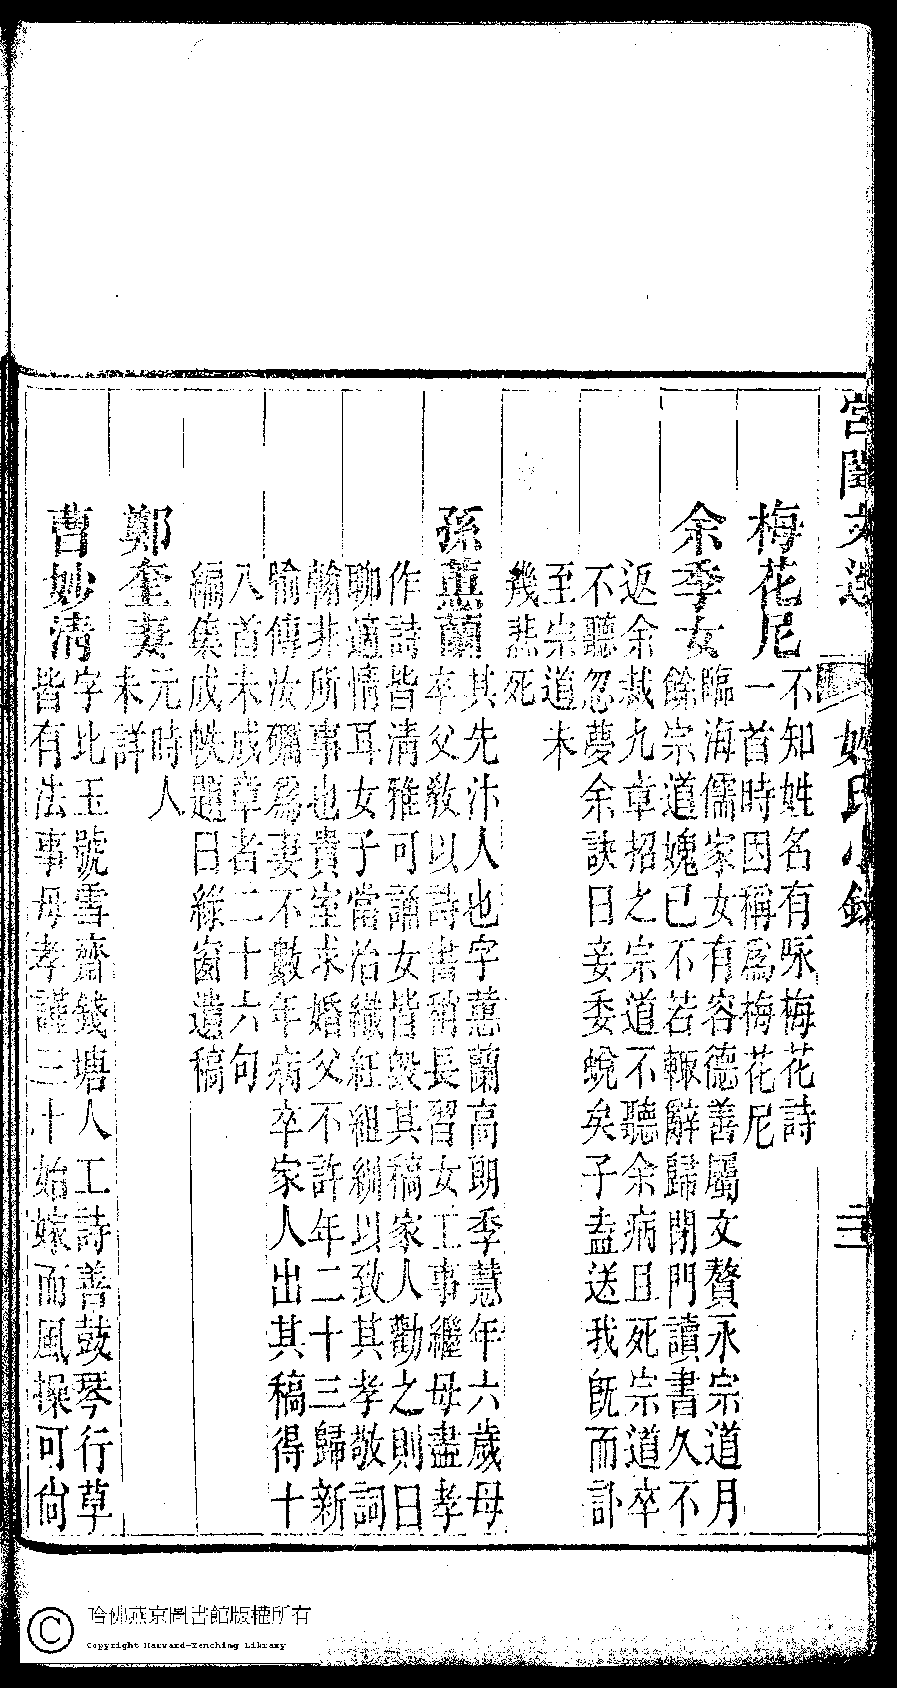 宮閨文選　姓氏小錄　三
梅花尼
不知姓名有咏梅花詩
一首時因稱爲梅花尼
余季女
臨海儒家女有容德善屬文贅永宗道月
餘宗道媿已不若輙辭歸閉門讀書久不
返余裁九章招之宗道不聽余病且死宗道卒
不聽忽夢余訣曰妾委蛻矣子盍送我旣而訃
至宗道未
幾悲死
孫蕙蘭
其先汴人也字蕙蘭高朗季慧年六歲母
卒父敎以詩書稍長習女工事繼母盡孝
作詩皆清雅可誦女皆毀其稿家人勸之則曰
聊適情耳女子當治織紅組紃以致其孝敬詞
翰非所事也貴室求婚父不許年二十三歸新
喻傅汝礪爲妻不數年病卒家人出其稿得十
八首未成章者二十六句
編集成帙題曰綠窗遺稿
鄭奎妻
元時人
未詳
曹妙清
字比玉號雪齋錢塘人工詩善鼓琴行草
皆有法事母孝謹三十始嫁而風操可尙
哈佛燕京圖書館版權所有
Copyright Harvard-Yenching Library